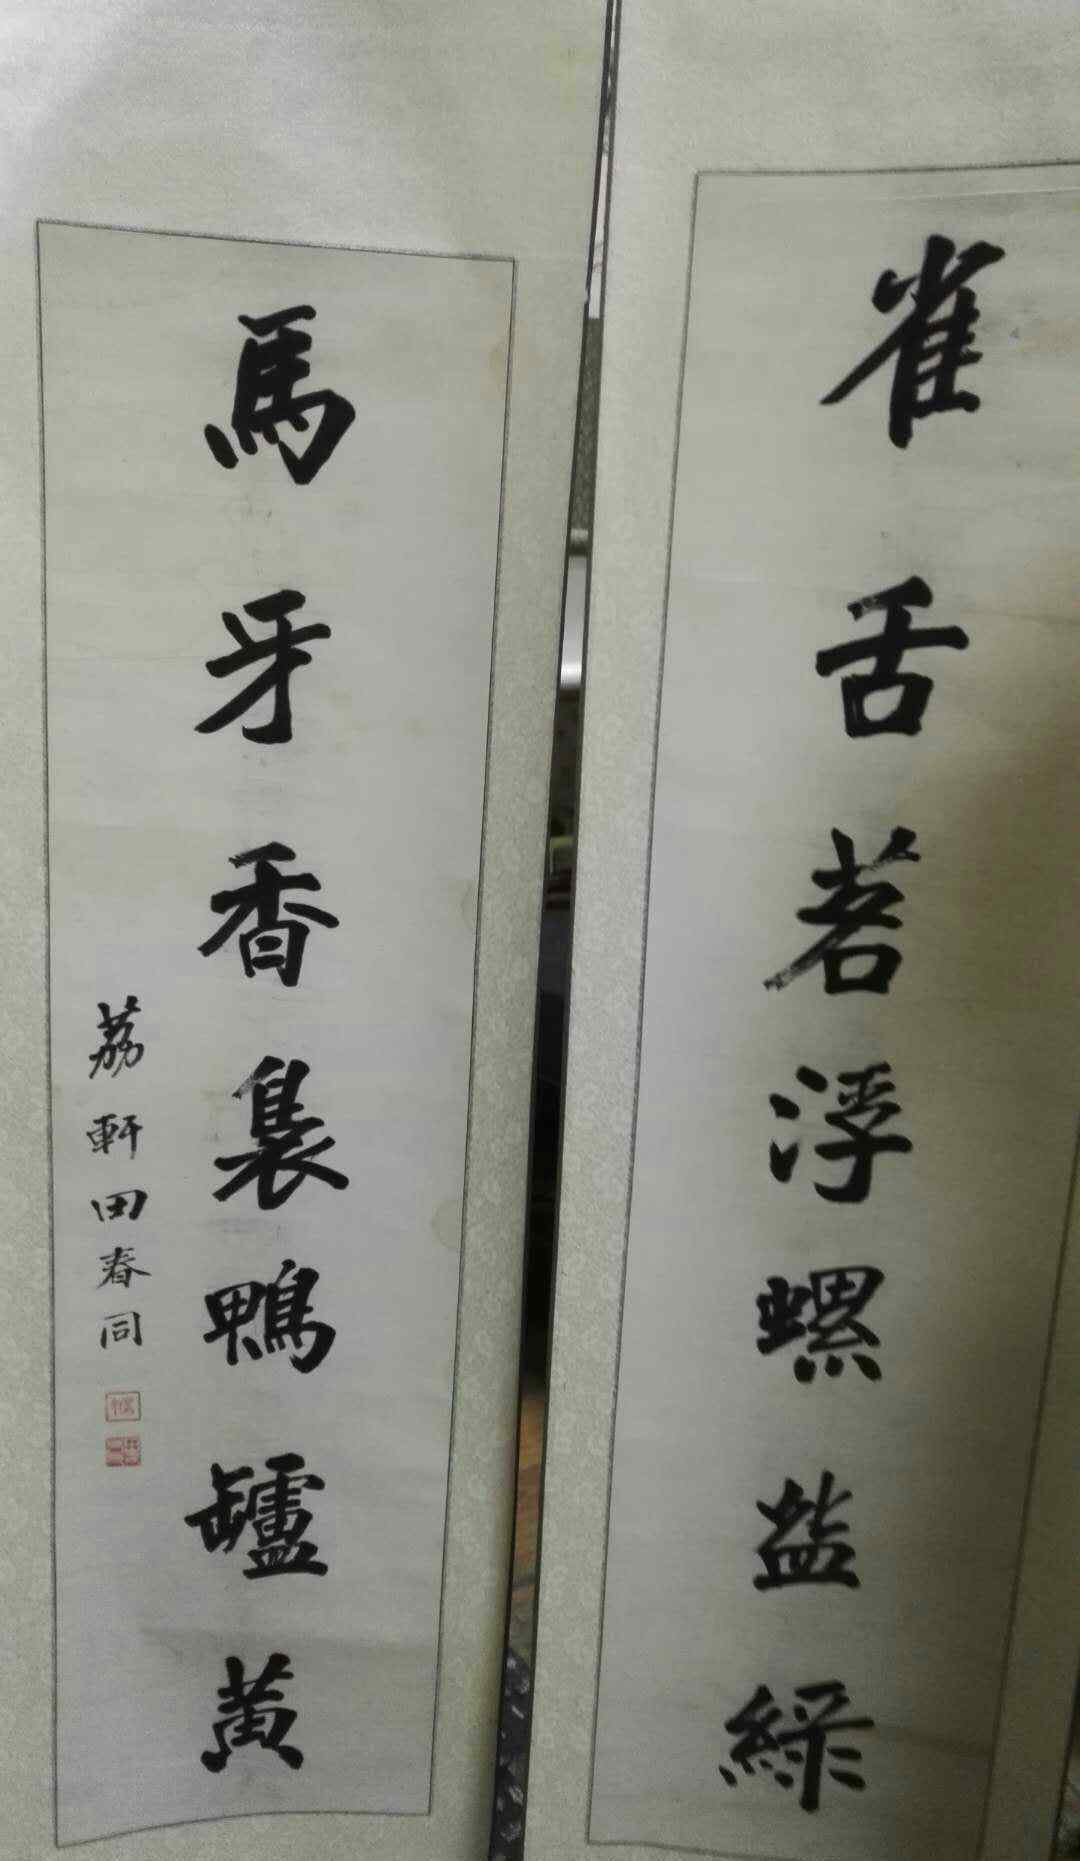 雀舌茗浮螺盌綠
馬牙香裊鴨罏黃
荔軒田春同